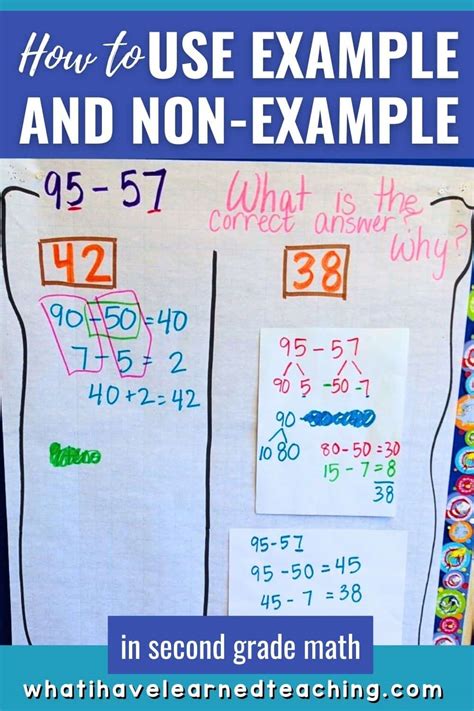 How to USE EXAMPLE
AND NON-EXAMPLE
95-57
What is the
correct answer?
Why?
42
90-50=40
7-5=2
40+2=42
38
95-57
90 5 -50 -7
90
10 80
80-50=30
15-7=8
38
95-57
95-50=45
45-7=38
in second grade math
whatihavelearnedteaching.com